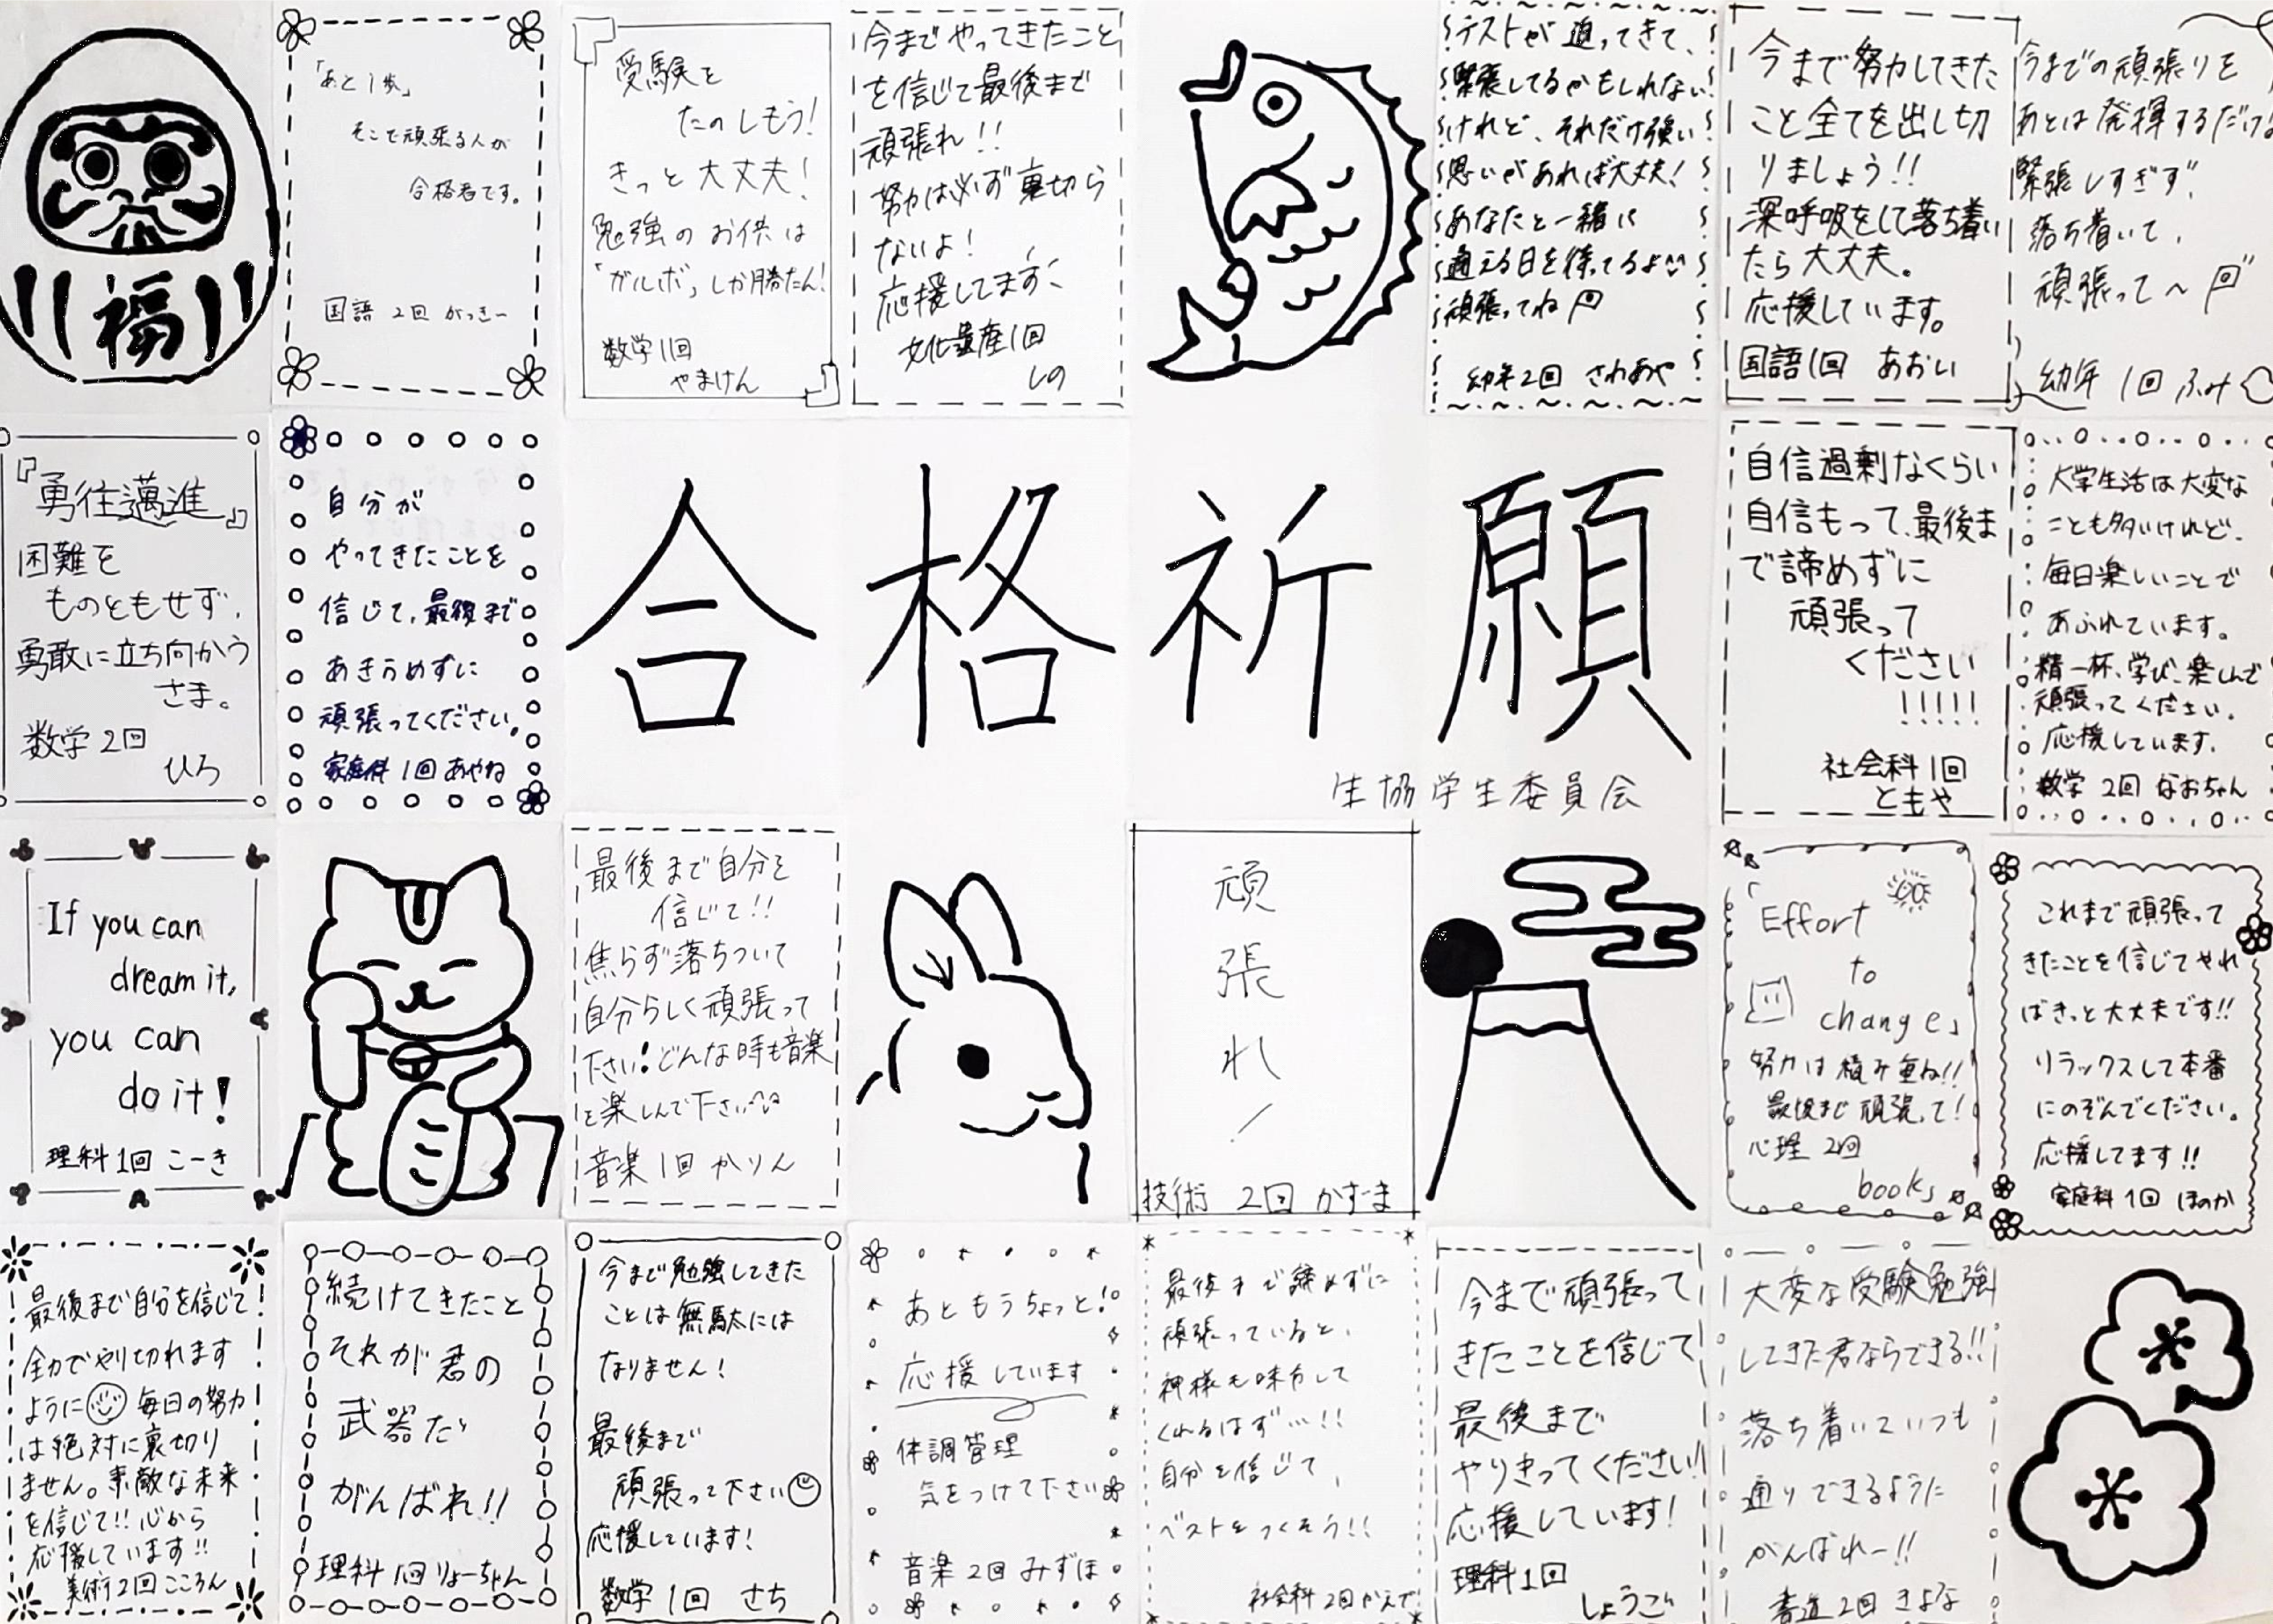 福
「あと1歩」
そこで頑張る人が
合格者です。
国語 2回 がっきー
受験を
たのしもう!
きっと大丈夫!
勉強のお供は
「ガルボ」しか勝たん!
数学1回
やまけん
今までやってきたこと
を信じて最後まで
頑張れ!!
努力は必ず裏切ら
ないよ!
応援してます
文化遺産1回
しの
テストが迫ってきて、
緊張してるかもしれない
けれど、それだけ強い
思いがあれば大丈夫!
あなたと一緒に
通える日を待ってるよ
頑張ってね
幼年2回 さわあや
今まで努力してきた
こと全てを出し切
りましょう!!
深呼吸をして落ち着い
たら大丈夫。
応援しています。
国語1回 あおい
今までの頑張りを
あとは発揮するだけ!
緊張しすぎず、
落ち着いて、
頑張って〜
幼年 1回 ふみ
『勇往邁進』
困難を
ものともせず、
勇敢に立ち向かう
さま。
数学2回
ひろ
自分が
やってきたことを
信じて、最後まで
あきらめずに
頑張ってください。
家庭科1回 あやね
合格祈願
生協学生委員会
自信過剰なくらい
自信もって、最後ま
で諦めずに
頑張って
ください
!!!!!
社会科1回
ともや
大学生活は大変な
ことも多いけれど、
毎日楽しいことで
あふれています。
精一杯、学び、楽しんで
頑張ってください。
応援しています。
数学 2回 なおちゃん
If you can
dream it,
you can
do it!
理科1回 こーき
最後まで自分を
信じて!!
焦らず落ちついて
自分らしく頑張って
下さい!どんな時も音楽
を楽しんで下さい
音楽1回 かりん
頑
張
れ
!
技術 2回 かずま
「Effort
to
change」
努力は積み重ね!!
最後まで頑張って!
心理 2回
books
これまで頑張って
きたことを信じてやれ
ばきっと大丈夫です!!
リラックスして本番
にのぞんでください。
応援してます!!
家庭科1回 ほのか
最後まで自分を信じて
全力でやり切れます
ように 毎日の努力
は絶対に裏切り
ません。素敵な未来
を信じて!!心から
応援しています!!
美術2回 こころん
続けてきたこと
それが君の
武器だ
がんばれ!!
理科1回りょーちゃん
今まで勉強してきた
ことは無駄には
なりません!
最後まで
頑張って下さい
応援しています!
数学1回 さち
あともうちょっと!
応援しています
体調管理
気をつけて下さい
音楽 2回 みずほ
最後まで諦めずに
頑張っていると、
神様も味方して
くれるはず…!!
自分を信じて、
ベストをつくそう!!
社会科2回かえで
今まで頑張って
きたことを信じて
最後まで
やりきってください!
応援しています!
理科1回
しょうご
大変な受験勉強
してきた君ならできる!!
落ち着いていつも
通りできるように
がんばれー!!
書道2回 きよな